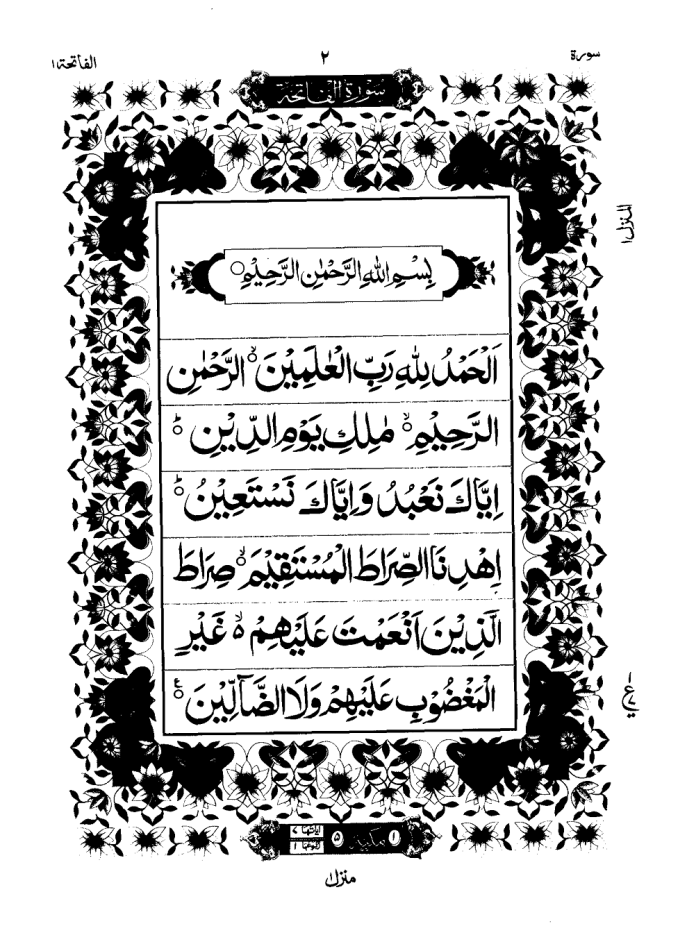 سورة ٢ الفاتحة ١
سورة الفاتحة
المنزل ١
بِسْمِ اللّٰهِ الرَّحْمٰنِ الرَّحِيْمِ ○
اَلْحَمْدُ لِلّٰهِ رَبِّ الْعٰلَمِيْنَ ۙ الرَّحْمٰنِ
الرَّحِيْمِ ۙ مٰلِكِ يَوْمِ الدِّيْنِ ؕ
اِيَّاكَ نَعْبُدُ وَاِيَّاكَ نَسْتَعِيْنُ ؕ
اِهْدِنَا الصِّرَاطَ الْمُسْتَقِيْمَ ۙ صِرَاطَ
الَّذِيْنَ اَنْعَمْتَ عَلَيْهِمْ ۙ غَيْرِ
الْمَغْضُوْبِ عَلَيْهِمْ وَلَا الضَّآلِّيْنَ ۧ
١ مكية ٥ اياتها ٧
ركوعها ١
منزل ١